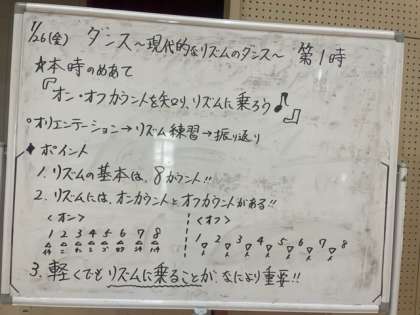 1/26(金) ダンス〜現代的なリズムのダンス〜 第1時
☆本時のめあて
『オン・オフカウントを知り、リズムに乗ろう♪』
○オリエンテーション→リズム練習→振り返り
◆ポイント
1. リズムの基本は、8カウント!!
2. リズムには、オンカウントとオフカウントがある!!
<オン> <オフ>
1 2 3 4 5 6 7 8 1 2 3 4 5 6 7 8
3. 軽くでもリズムに乗ることが、なにより重要!!